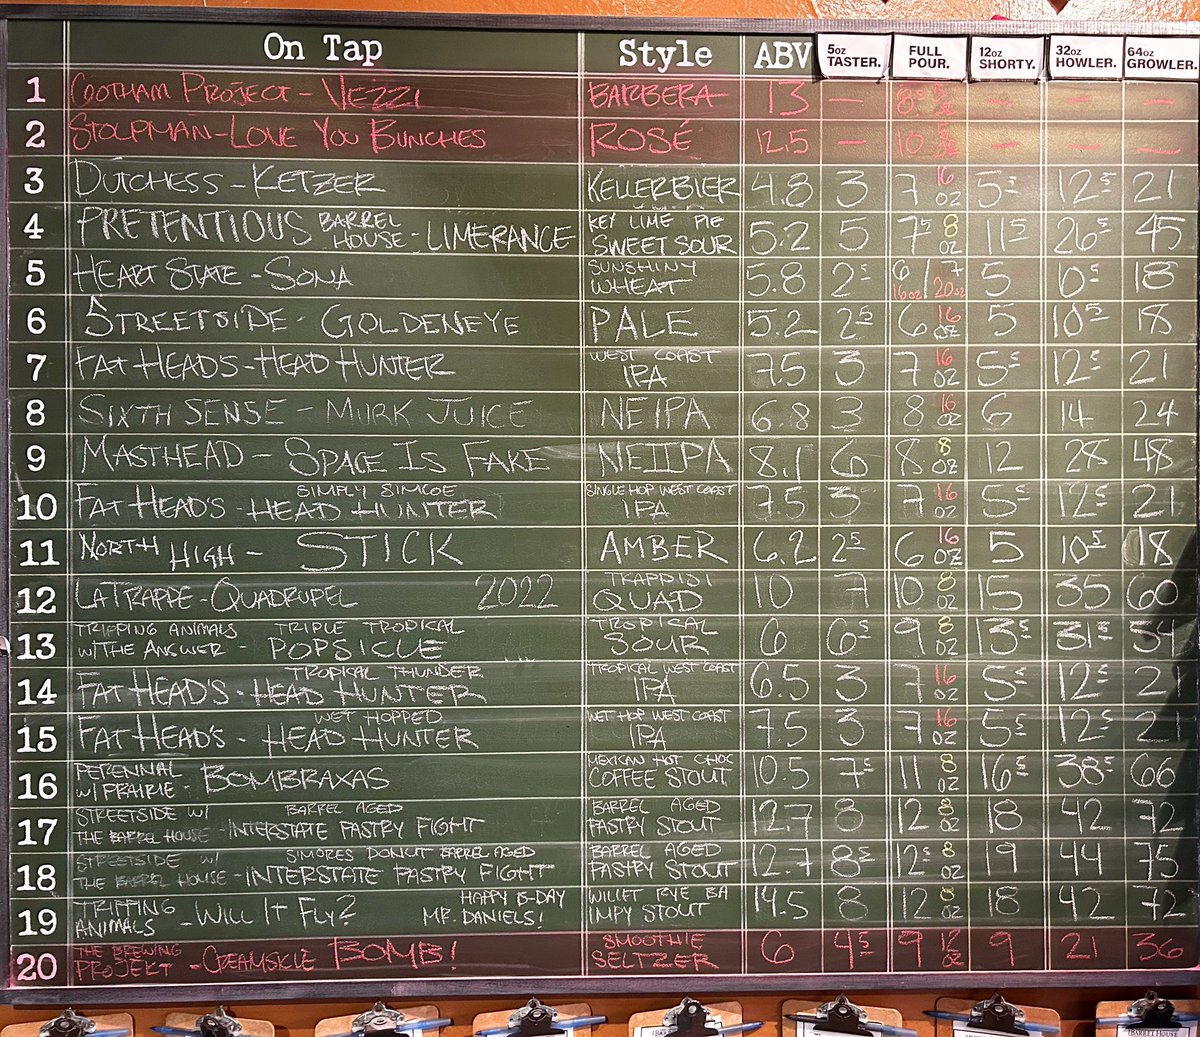 On Tap Style ABV 5oz TASTER. FULL POUR. 12oz SHORTY. 32oz HOWLER. 64oz GROWLER.
1 GOTHAM PROJECT - VEZZI BARBERA 13 — — — —
2 STOLPMAN - LOVE YOU BUNCHES ROSÉ 12.5 — 10 — — —
3 DUTCHESS - KETZER KELLERBIER 4.8 3 7 16 OZ 5⁵ 12⁵ 21
4 PRETENTIOUS BARREL HOUSE - LIMERANCE KEY LIME PIE SWEET SOUR 5.2 5 7⁵ 8 OZ 11⁵ 26⁵ 45
5 HEART STATE - SONA SUNSHINY WHEAT 5.8 2⁵ 6 16oz / 7 20oz 5 10⁵ 18
6 STREETSIDE - GOLDENEYE PALE 5.2 2⁵ 6 16 OZ 5 10⁵ 18
7 FAT HEAD'S - HEAD HUNTER WEST COAST IPA 7.5 3 7 16 OZ 5⁵ 12⁵ 21
8 SIXTH SENSE - MURK JUICE NEIPA 6.8 3 8 16 OZ 6 14 24
9 MASTHEAD - SPACE IS FAKE NEIIPA 8.1 6 8 8 OZ 12 28 48
10 FAT HEAD'S - SIMPLY SIMCOE HEAD HUNTER SINGLE HOP WEST COAST IPA 7.5 3 7 16 OZ 5⁵ 12⁵ 21
11 NORTH HIGH - STICK AMBER 6.2 2⁵ 6 16 OZ 5 10⁵ 18
12 LA TRAPPE - QUADRUPEL 2022 TRAPPIST QUAD 10 7 10 8 OZ 15 35 60
13 TRIPPING ANIMALS W/ THE ANSWER - TRIPLE TROPICAL POPSICLE TROPICAL SOUR 6 6⁵ 9 8 OZ 13⁵ 31⁵ 54
14 FAT HEAD'S - TROPICAL THUNDER HEAD HUNTER TROPICAL WEST COAST IPA 6.5 3 7 16 OZ 5⁵ 12⁵ 21
15 FAT HEAD'S - WET HOPPED HEAD HUNTER WET HOP WEST COAST IPA 7.5 3 7 16 OZ 5⁵ 12⁵ 21
16 PERENNIAL W/ PRAIRIE - BOMBRAXAS MEXICAN HOT CHOC COFFEE STOUT 10.5 7⁵ 11 8 OZ 16⁵ 38⁵ 66
17 STREETSIDE W/ THE BARREL HOUSE - BARREL AGED INTERSTATE PASTRY FIGHT BARREL AGED PASTRY STOUT 12.7 8 12 8 OZ 18 42 72
18 STREETSIDE W/ THE BARREL HOUSE - S'MORES DONUT BARREL AGED INTERSTATE PASTRY FIGHT BARREL AGED PASTRY STOUT 12.7 8⁵ 12⁵ 8 OZ 19 44 75
19 TRIPPING ANIMALS - WILL IT FLY? HAPPY B-DAY MR. DANIELS! WILLET RYE BA IMPY STOUT 14.5 8 12 8 OZ 18 42 72
20 THE BREWING PROJEKT - CREAMSICLE BOMB! SMOOTHIE SELTZER 6 4⁵ 9 12 OZ 9 21 36
BARREL HOUSE